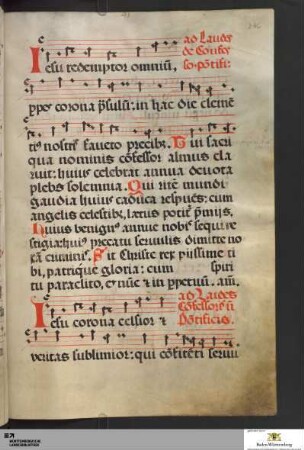 ad Laudes
de Confes
Iesu redemptor omniū,
so. pōtifi:
ppes corona p̄sulū: in hac die clemē
tis nostris faueto precibꝫ. Tui sacri
qua nominis cōfessor almus cla
ruit: huius celebrat annua deuota
plebs solemnia. Qui rite mundi
gaudia huius caduca respuēs: cum
angelis celestibꝫ, lætus potit' p̄mijs,
Huius benignus annue nobis sequi ve
stigia: huius precatu seruulis dimitte no
xā criminis. Sit Christe rex piissime ti
bi, patrique gloria: cum spiri
tu paraclito, et nūc et in ppetuū. am̄.
ad Laudes
Iesu corona celsior et
Cōfessoris nō
Pōtificis.
veritas sublimior: qui cōfitēti seruu